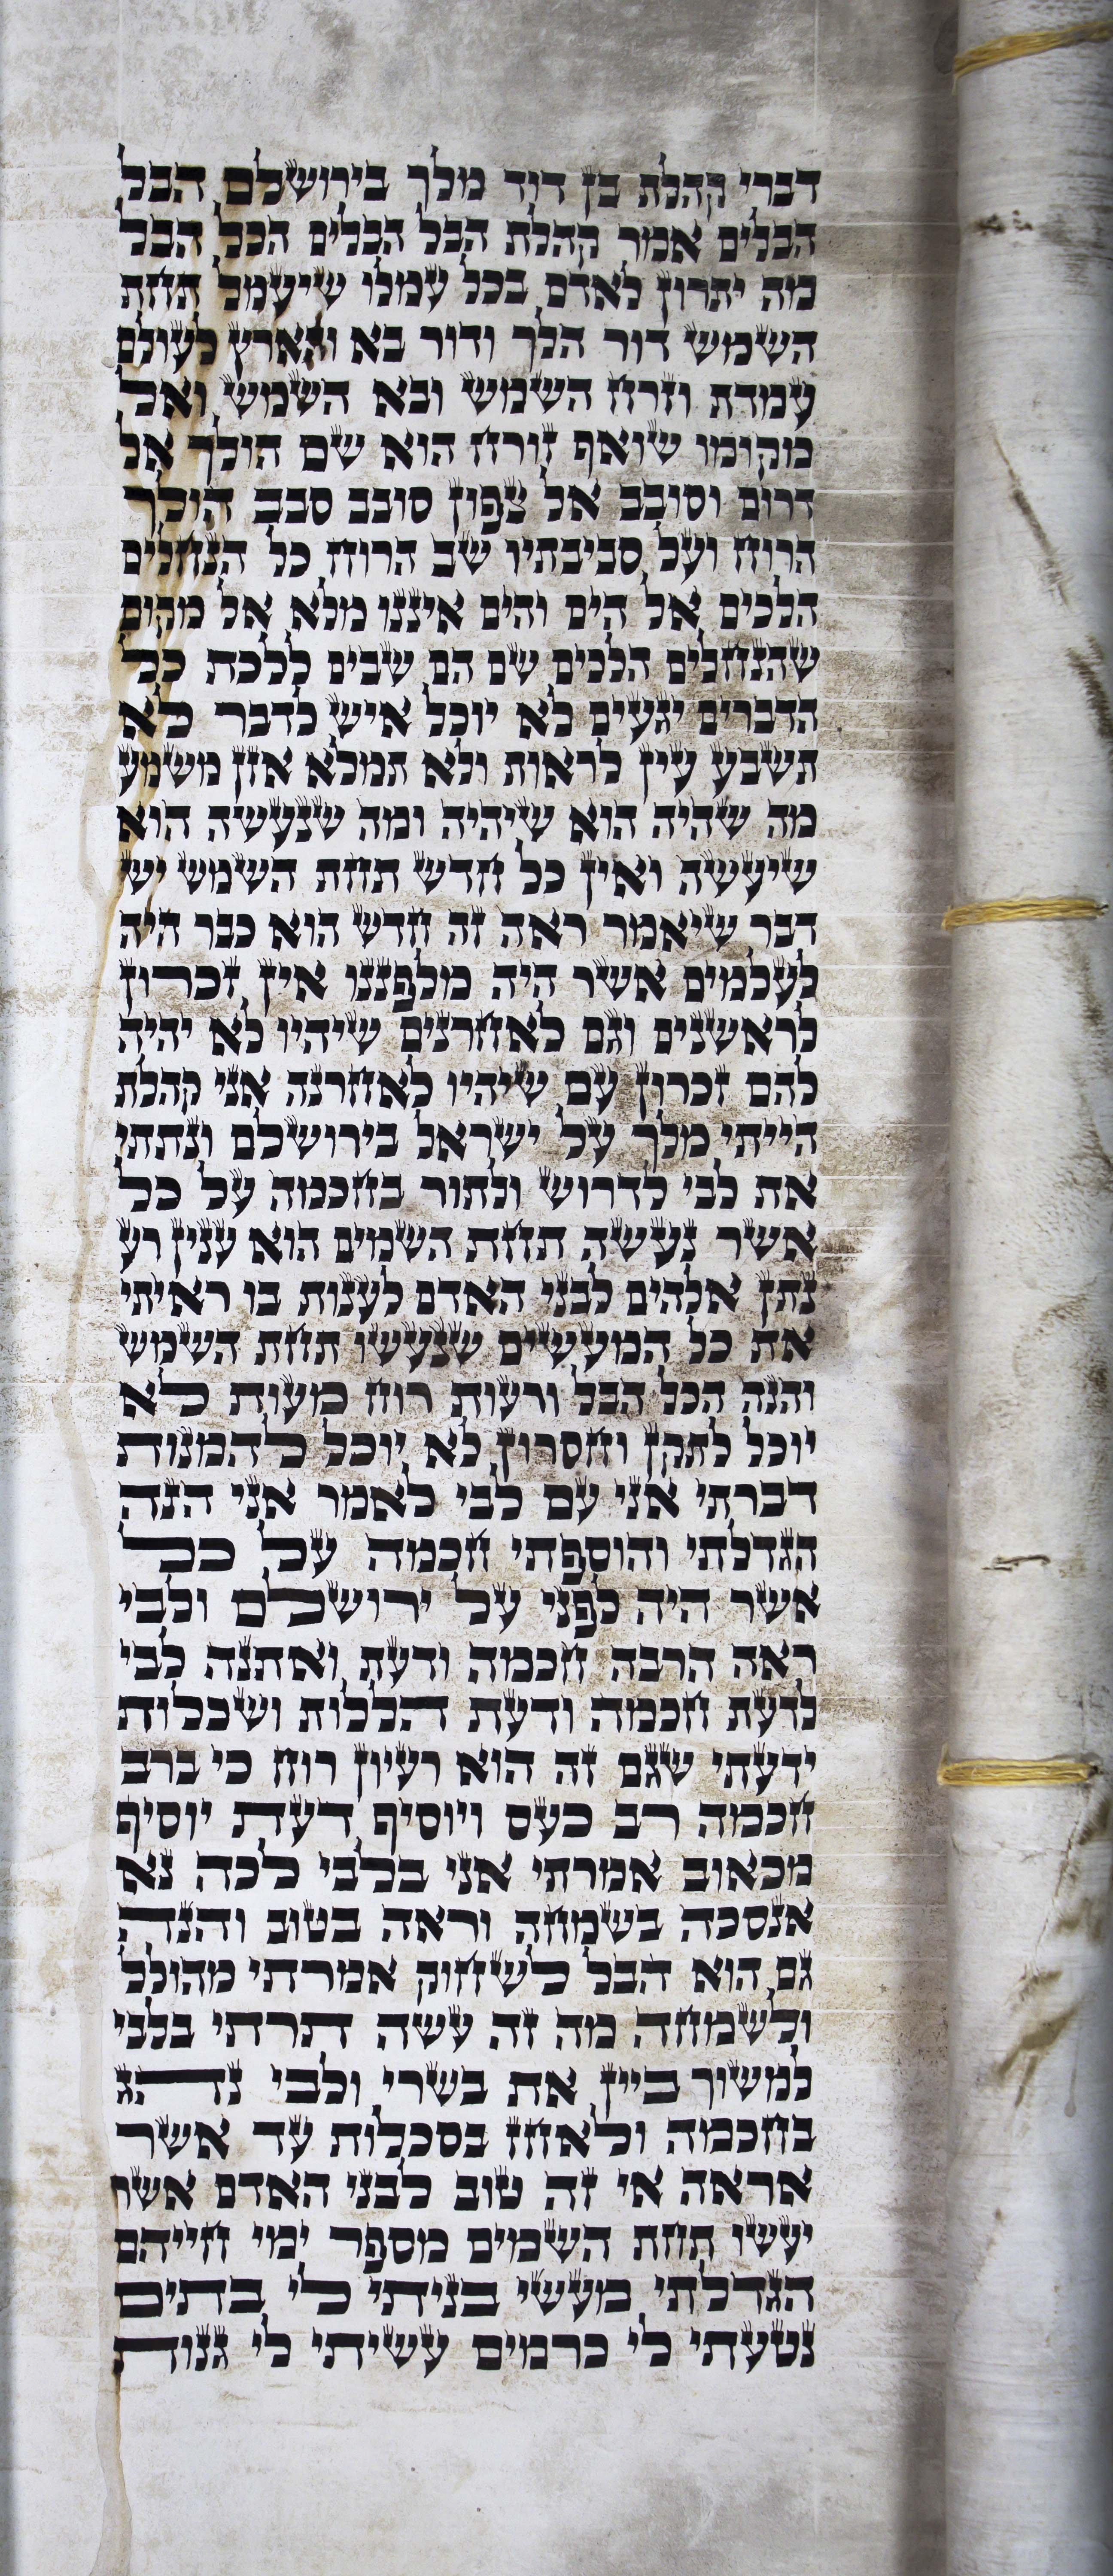 דברי קהלת בן דוד מלך בירושלם הבל
הבלים אמר קהלת הבל הבלים הכל הבל
מה יתרון לאדם בכל עמלו שיעמל תחת
השמש דור הלך ודור בא והארץ לעולם
עמדת וזרח השמש ובא השמש ואל
מקומו שואף זורח הוא שם הולך אל
דרום וסובב אל צפון סובב סבב הולך
הרוח ועל סביבתיו שב הרוח כל הנחלים
הלכים אל הים והים איננו מלא אל מקום
שהנחלים הלכים שם הם שבים ללכת כל
הדברים יגעים לא יוכל איש לדבר לא
תשבע עין לראות ולא תמלא אזן משמע
מה שהיה הוא שיהיה ומה שנעשה הוא
שיעשה ואין כל חדש תחת השמש יש
דבר שיאמר ראה זה חדש הוא כבר היה
לעלמים אשר היה מלפננו אין זכרון
לראשנים וגם לאחרנים שיהיו לא יהיה
להם זכרון עם שיהיו לאחרנה אני קהלת
הייתי מלך על ישראל בירושלם ונתתי
את לבי לדרוש ולתור בחכמה על כל
אשר נעשה תחת השמים הוא ענין רע
נתן אלהים לבני האדם לענות בו ראיתי
את כל המעשים שנעשו תחת השמש
והנה הכל הבל ורעות רוח מעות לא
יוכל לתקן וחסרון לא יוכל להמנות
דברתי אני עם לבי לאמר אני הנה
הגדלתי והוספתי חכמה על כל
אשר היה לפני על ירושלם ולבי
ראה הרבה חכמה ודעת ואתנה לבי
לדעת חכמה ודעת הללות ושכלות
ידעתי שגם זה הוא רעיון רוח כי ברב
חכמה רב כעס ויוסיף דעת יוסיף
מכאוב אמרתי אני בלבי לכה נא
אנסכה בשמחה וראה בטוב והנה
גם הוא הבל לשחוק אמרתי מהולל
ולשמחה מה זה עשה תרתי בלבי
למשוך ביין את בשרי ולבי נהג
בחכמה ולאחז בסכלות עד אשר
אראה אי זה טוב לבני האדם אשר
יעשו תחת השמים מספר ימי חייהם
הגדלתי מעשי בניתי לי בתים
נטעתי לי כרמים עשיתי לי גנות